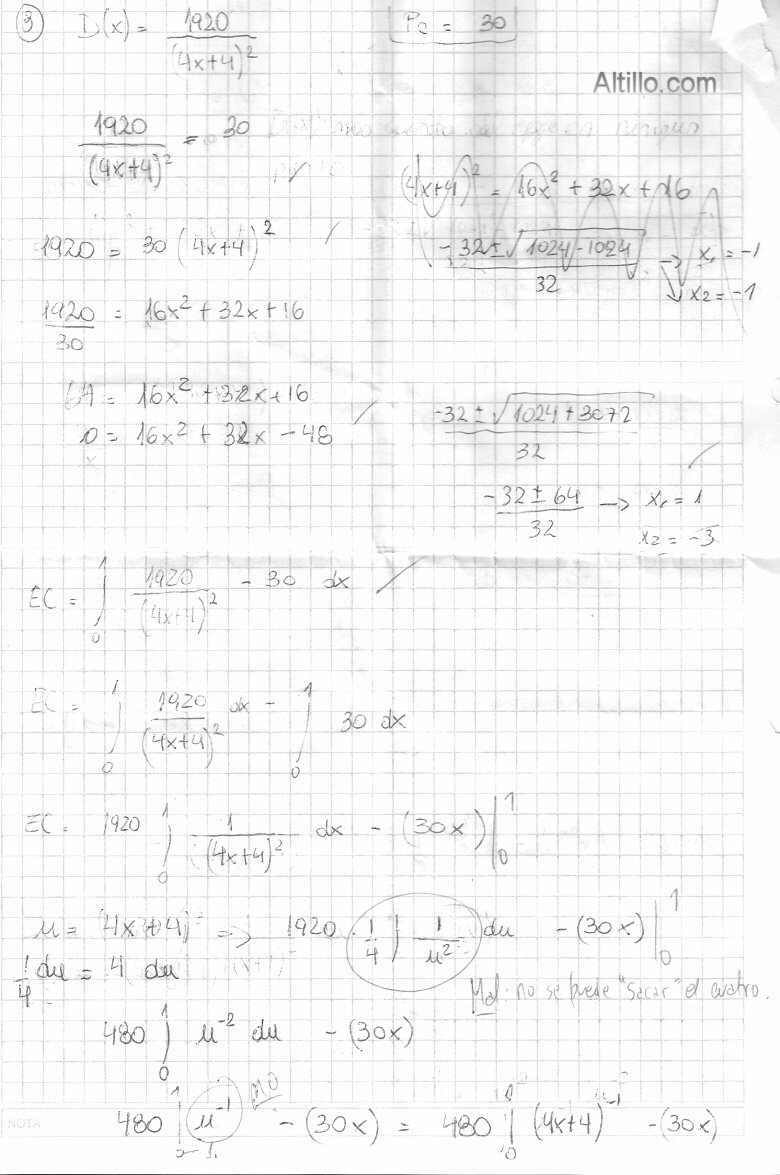 ③ D(x) = 1920 / (4x+4)² Pe = 30
Altillo.com
1920 / (4x+4)² = 30
(4x+4)² = 16x² + 32x + 16
1920 = 30 (4x+4)²
-32 ± √(1024 - 1024) / 32 → x₁ = -1
x₂ = -1
1920 / 30 = 16x² + 32x + 16
64 = 16x² + 32x + 16
0 = 16x² + 32x - 48
-32 ± √(1024 + 3072) / 32
-32 ± 64 / 32 → x₁ = 1
x₂ = -3
EC = ∫₀¹ 1920 / (4x+4)² - 30 dx
EC = ∫₀¹ 1920 / (4x+4)² dx - ∫₀¹ 30 dx
EC = 1920 ∫₀¹ 1 / (4x+4)² dx - (30x) |₀¹
u = (4x+4) => 1920 · 1/4 ∫ 1/u² du - (30x) |₀¹
1/4 du = 4 du
Mal: no se puede "sacar" el cuatro.
480 ∫₀¹ u⁻² du - (30x)
NO
480 |₀¹ u⁻¹ / -1 - (30x) = 480 |₀¹ (4x+4)⁻¹ - (30x)
NOTA